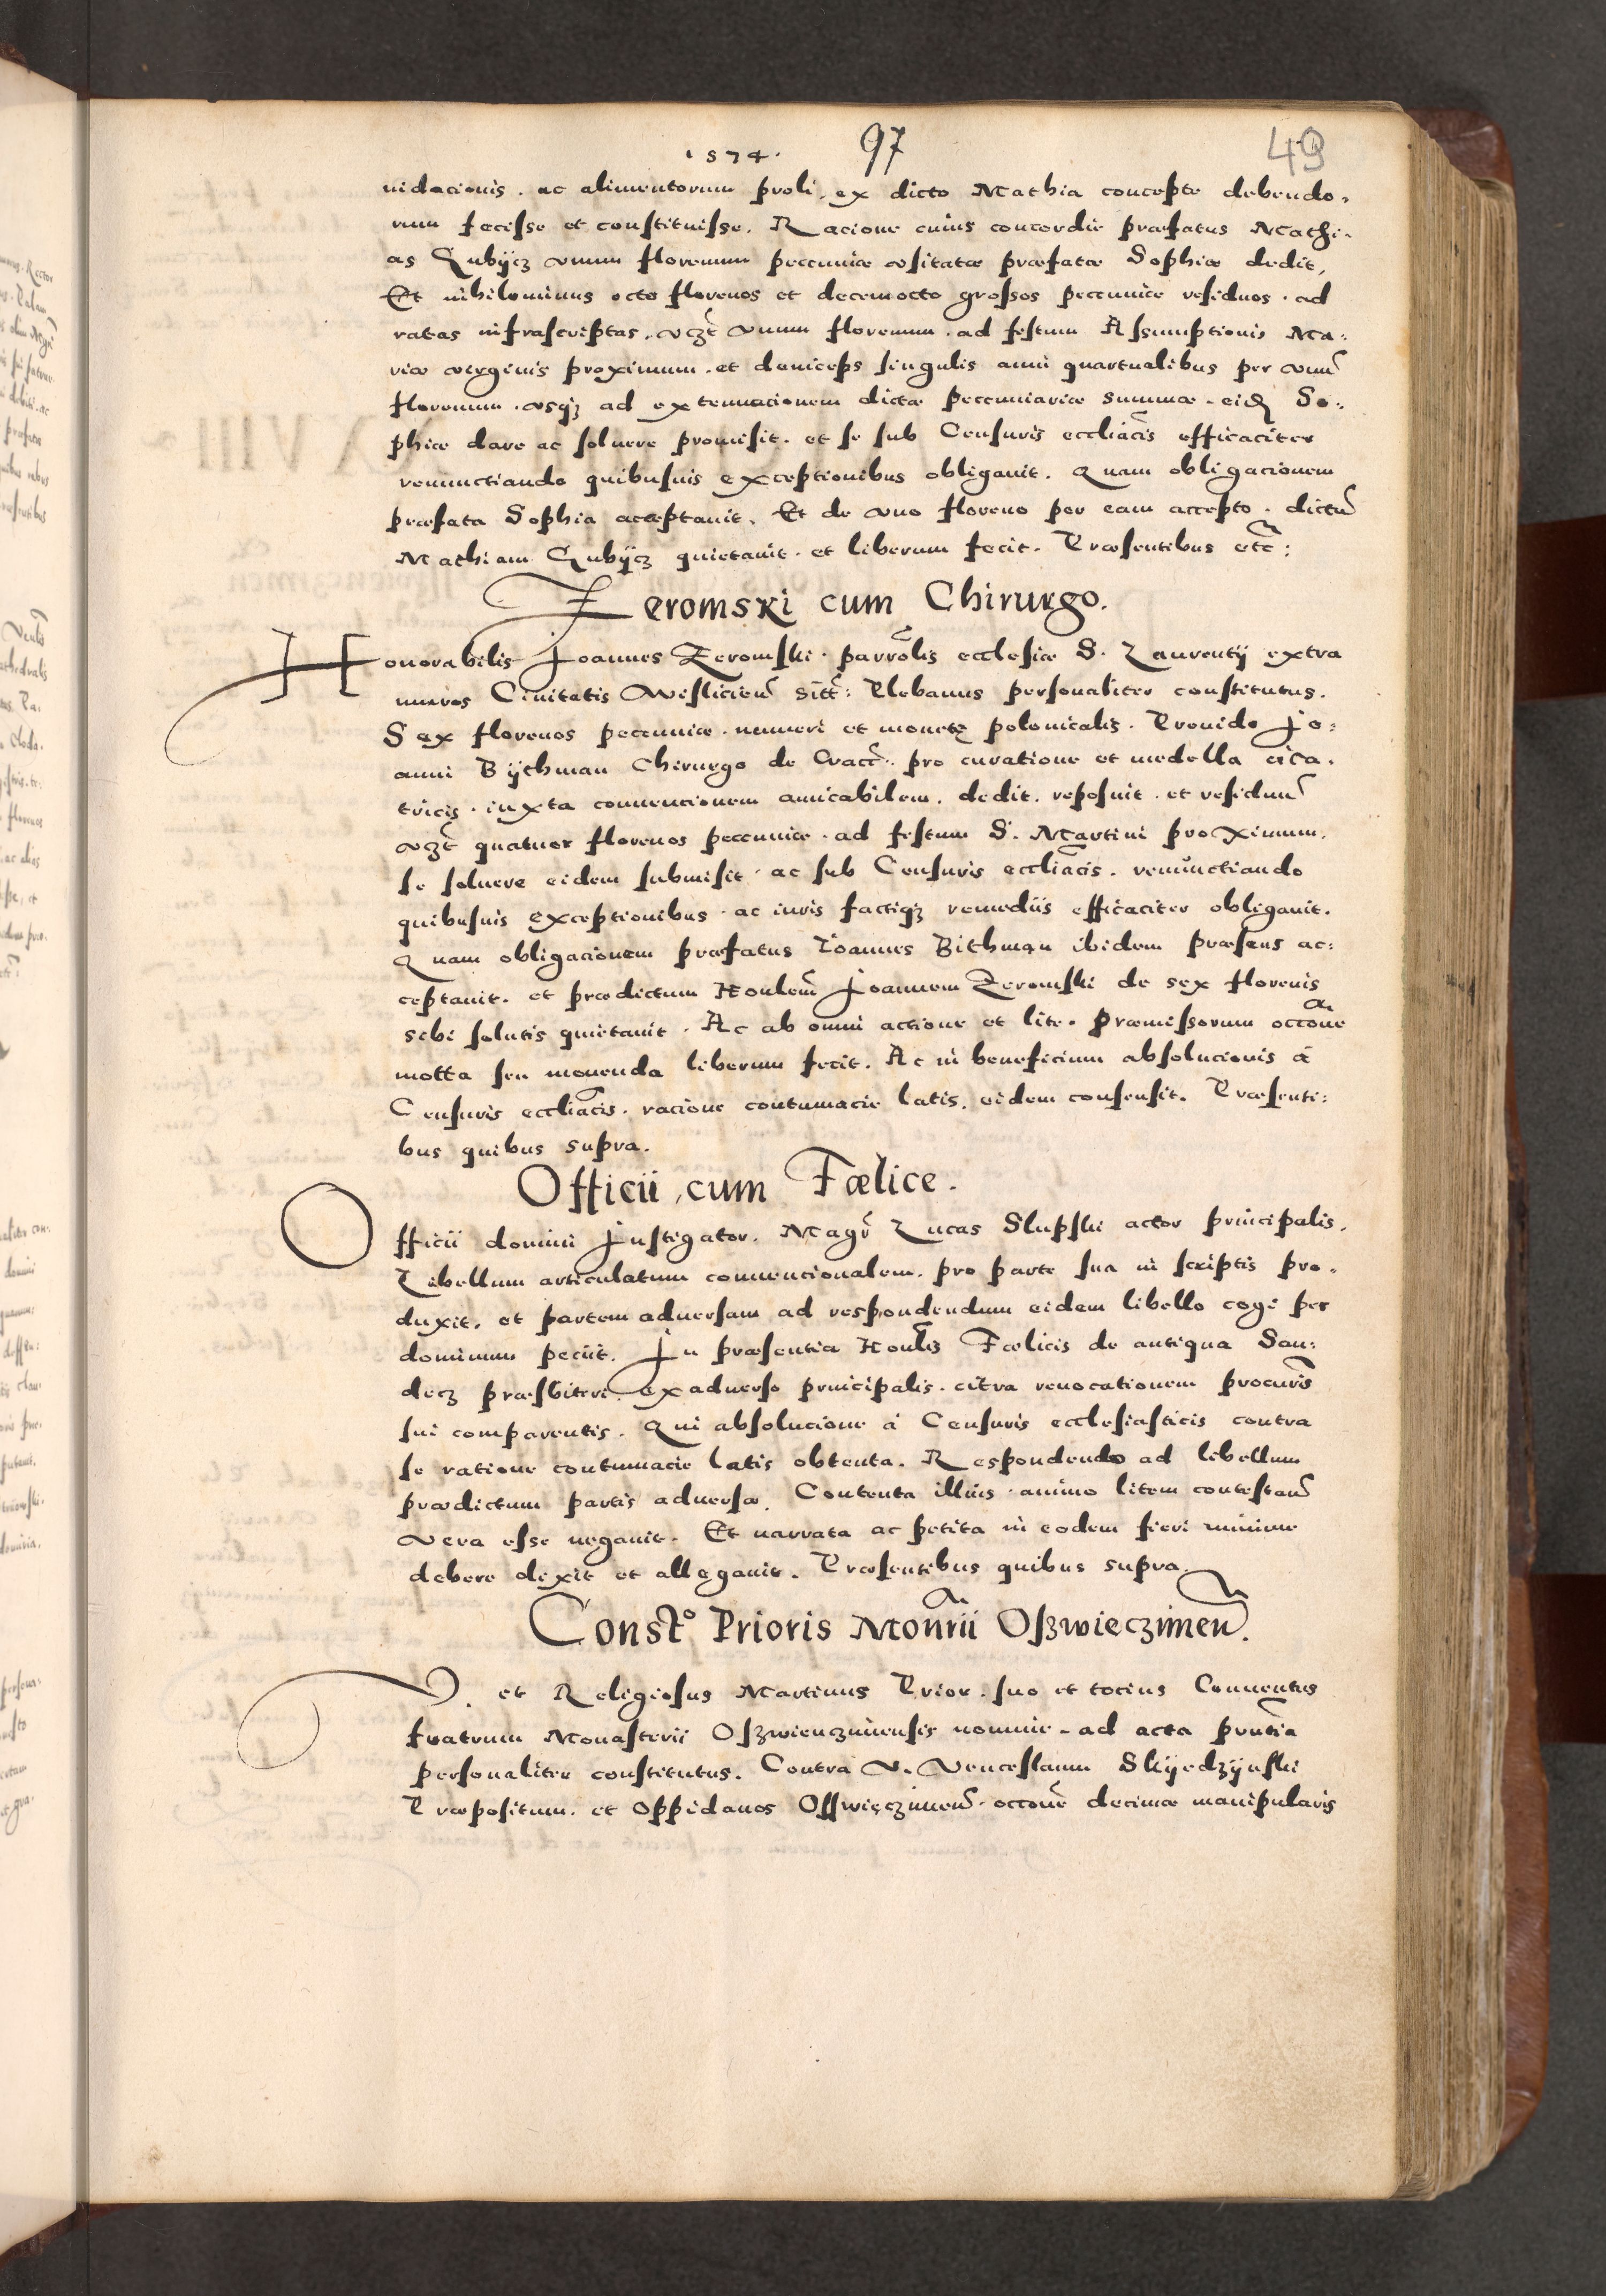 1574. 97 49
uidacionis . ac alimentorum proli . ex dicto Mathia concepte debendo,
rum fecisse et constituisse. Racione cuius concordie præfatus Mathi-
as Qubijcz vnum florenum peccuniæ vsitatæ præfatæ Sophiæ dedit,
Et nihilominus octo florenos et decemocto grossos peccuniæ residuos . ad
ratas infrascriptas . vczt vnum florenum . ad festum Assumptionis Ma:
riæ virginis proximum . et deniceps singulis anni quartualibus per vnũ
florenum . vsqz ad extenuacionem dictæ peccuniariæ summæ . eid So:
phiæ dare ac soluere promisit. et se sub Censuris eccliacis efficaciter
renunctiando quibusuis exceptionibus obligauit. Quam obligacionem
præfata Sophia acceptauit. Et de vno floreno per eam accepto . dictũ
Mathiam Qubijcz quietauit . et liberum fecit. Præsentibus etc:
Zeromski cum Chirurgo.
Honorabilis Joannes Zeromski . parrolis ecclesiæ S. Laurentij extra
muros Ciuitatis Wisliciem̃ sitt: Plebanus personaliter constitutus.
Sex florenos peccuniæ . numeri et monetę polonicalis . Prouido Jo:
anni Bythman Chirurgo de Crac̃: pro curatione et medella cica.
tricis . iuxta conuencionem amicabilem . dedit . reposuit . et residuũ
vczt quatuor florenos peccuniæ . ad festum S. Martini proximum.
se soluere eidem submisit . ac sub Censuris eccliacis . renũnctiando
quibusuis exceptionibus . ac iuris factiqz remediis efficaciter obligauit.
Quam obligacionem præfatus Ioannes Bithman ibidem præsens ac:
ceptauit. et prædictum Honlem̃ Joannem Zeromski de sex florenis
sibi solutis quietauit . Ac ab omni actione et lite . præmissorum occone
motta seu mouenda liberum fecit. Ac in beneficium absolucionis à
Censuris eccliacis . racione contumacie latis . eidem consensit. Præsenti:
bus quibus supra.
Officii cum Fælice.
Officii domini Instigator. Magr̃ Lucas Slupski actor principalis.
Libellum articulatum conuencionalem . pro parte sua in scriptis pro.
duxit. et partem aduersam ad respondendum eidem libello cogi per
dominum peciit. In præsentia Honlis Fælicis de antiqua San:
decz præsbiteri . ex aduerso principalis . citra reuocationem procuris
sui comparentis. Qui absolucione à Censuris ecclesiasticis contra
se ratione contumacie latis obtenta. Respondendo ad libellum
prædictum partis aduersæ. Contenta illius . animo litem contestan̄
vera esse negauit. Et narrata ac petita in eodem fieri minime
debere dixit et allegauit. Præsentibus quibus supra.
Const.º Prioris Monrii Oszwieczimen̄.
V. et Religiosus Martinus Prior . suo et tocius Conuentus
fratrum Monasterii Oszwienczimensis nomine . ad acta prntia
personaliter constitutus. Contra V. Venceslaum Skyedzynski
Præpositum . et oppidanos Osswięczimen̄ . occone decimæ manipularis